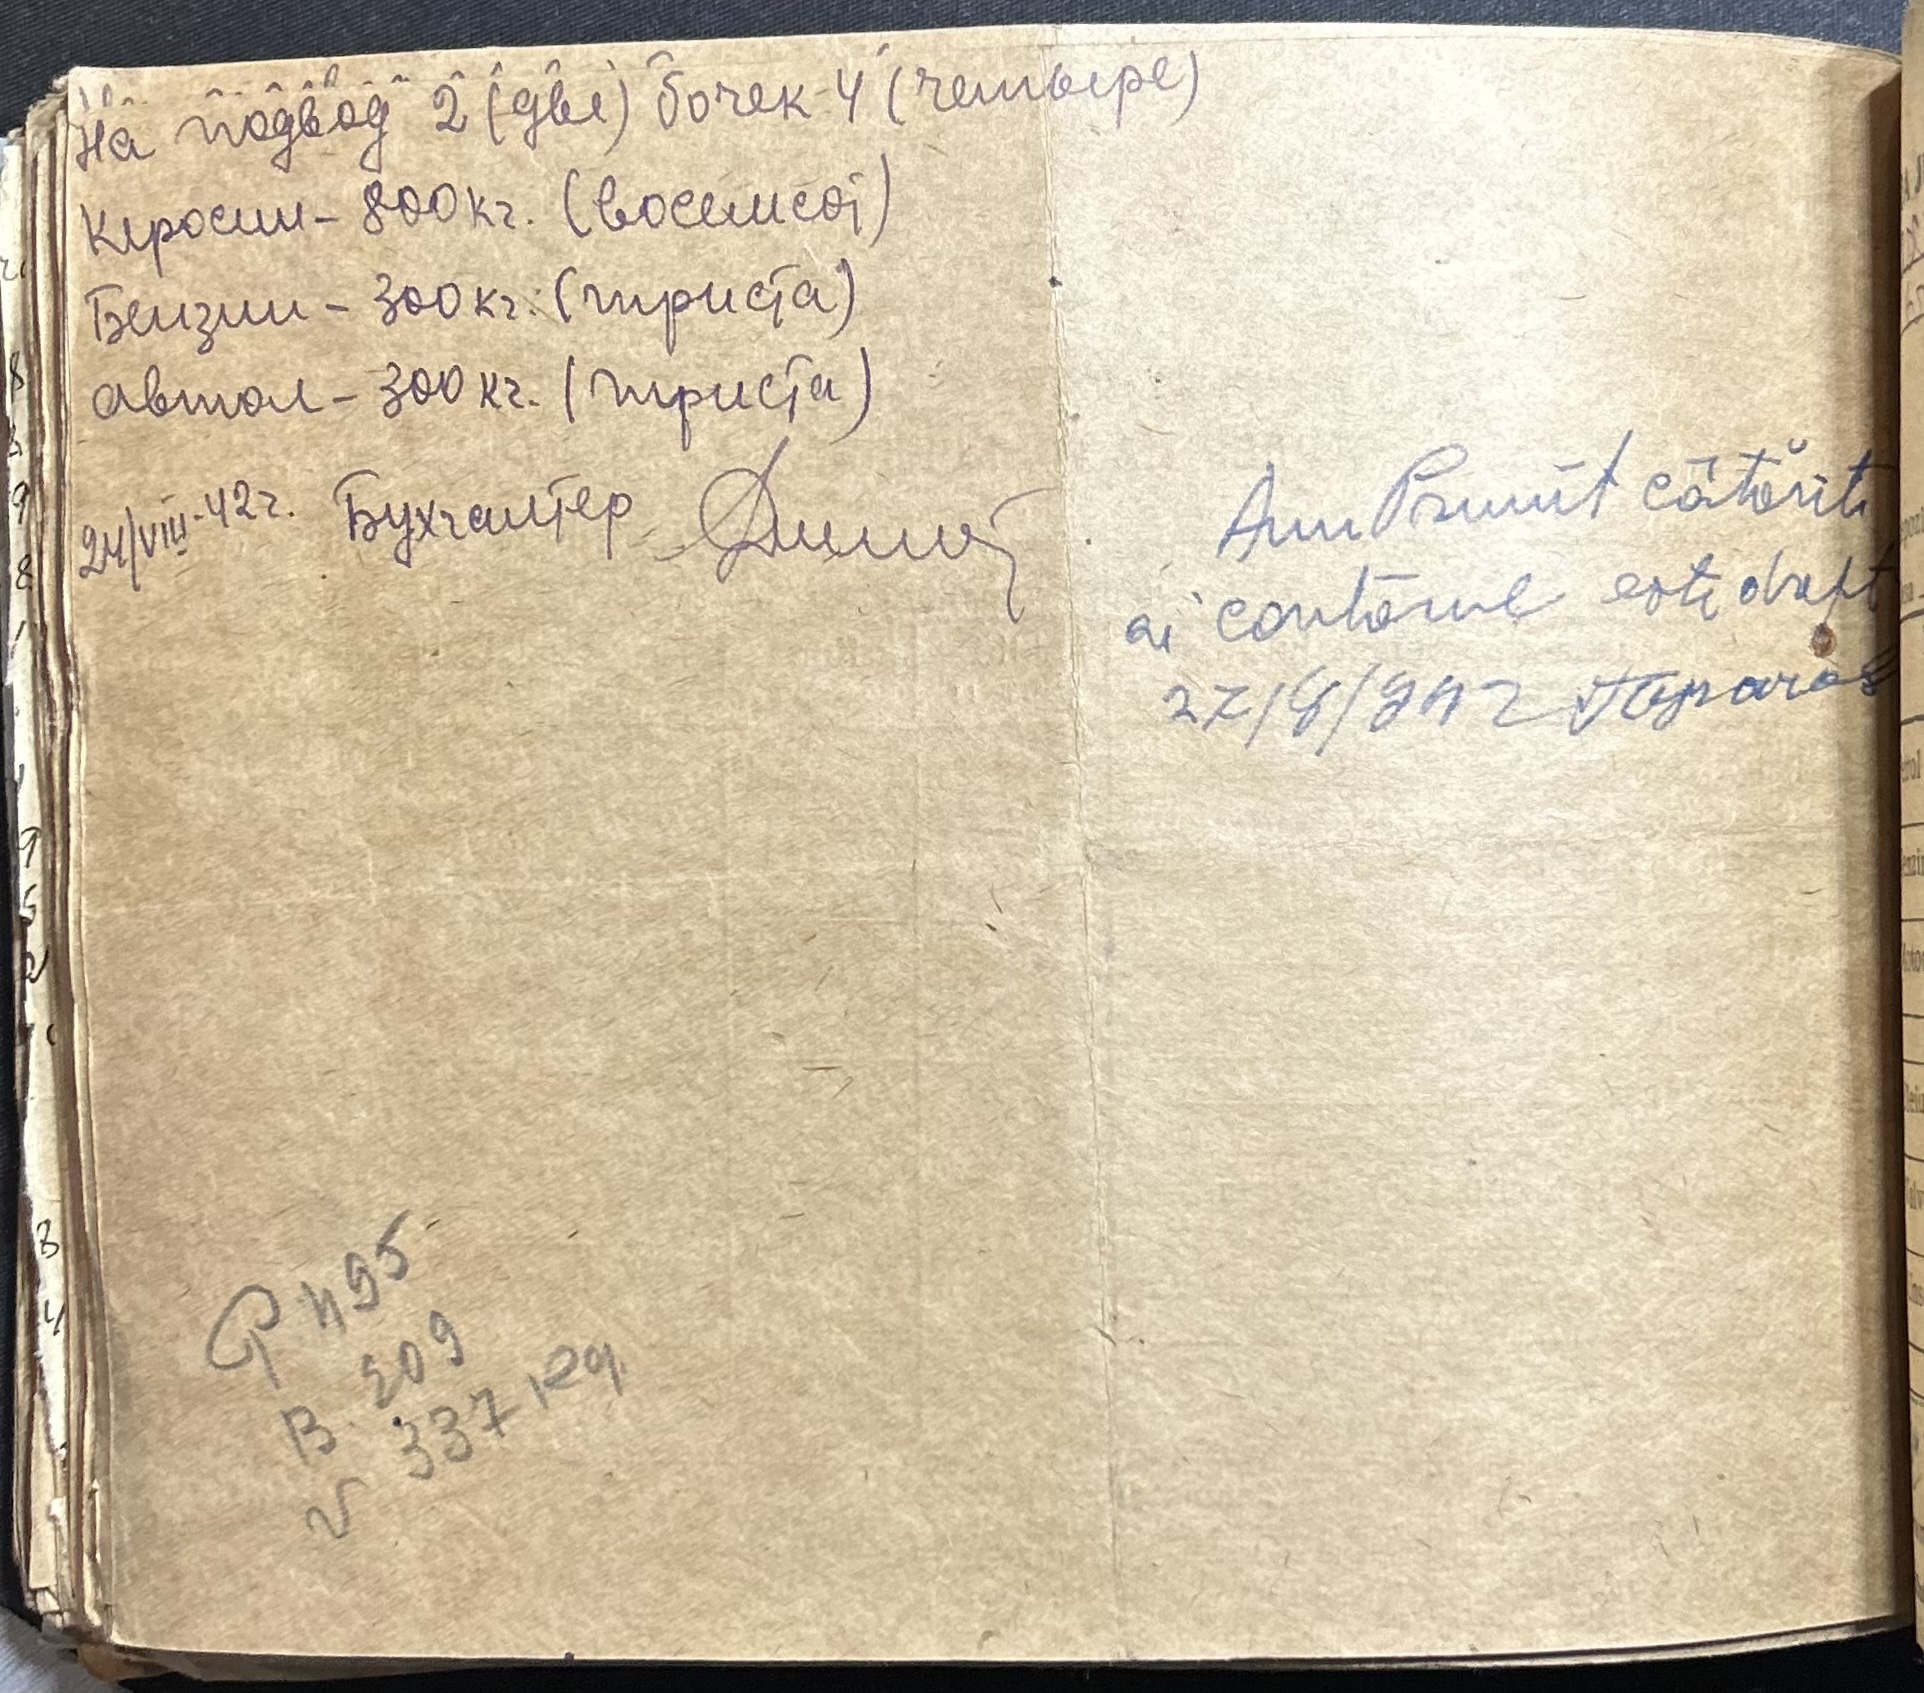 На подвод 2 (две) бочек 4 (четыре)
Керосин – 800 кг. (восемсот)
Бензин – 300 кг. (триста)
Автол – 300 кг. (триста)
24/VIII-42 г. Бухгалтер
Am Primit
este drept
27/8/942
P 495
B. 209
337 kg